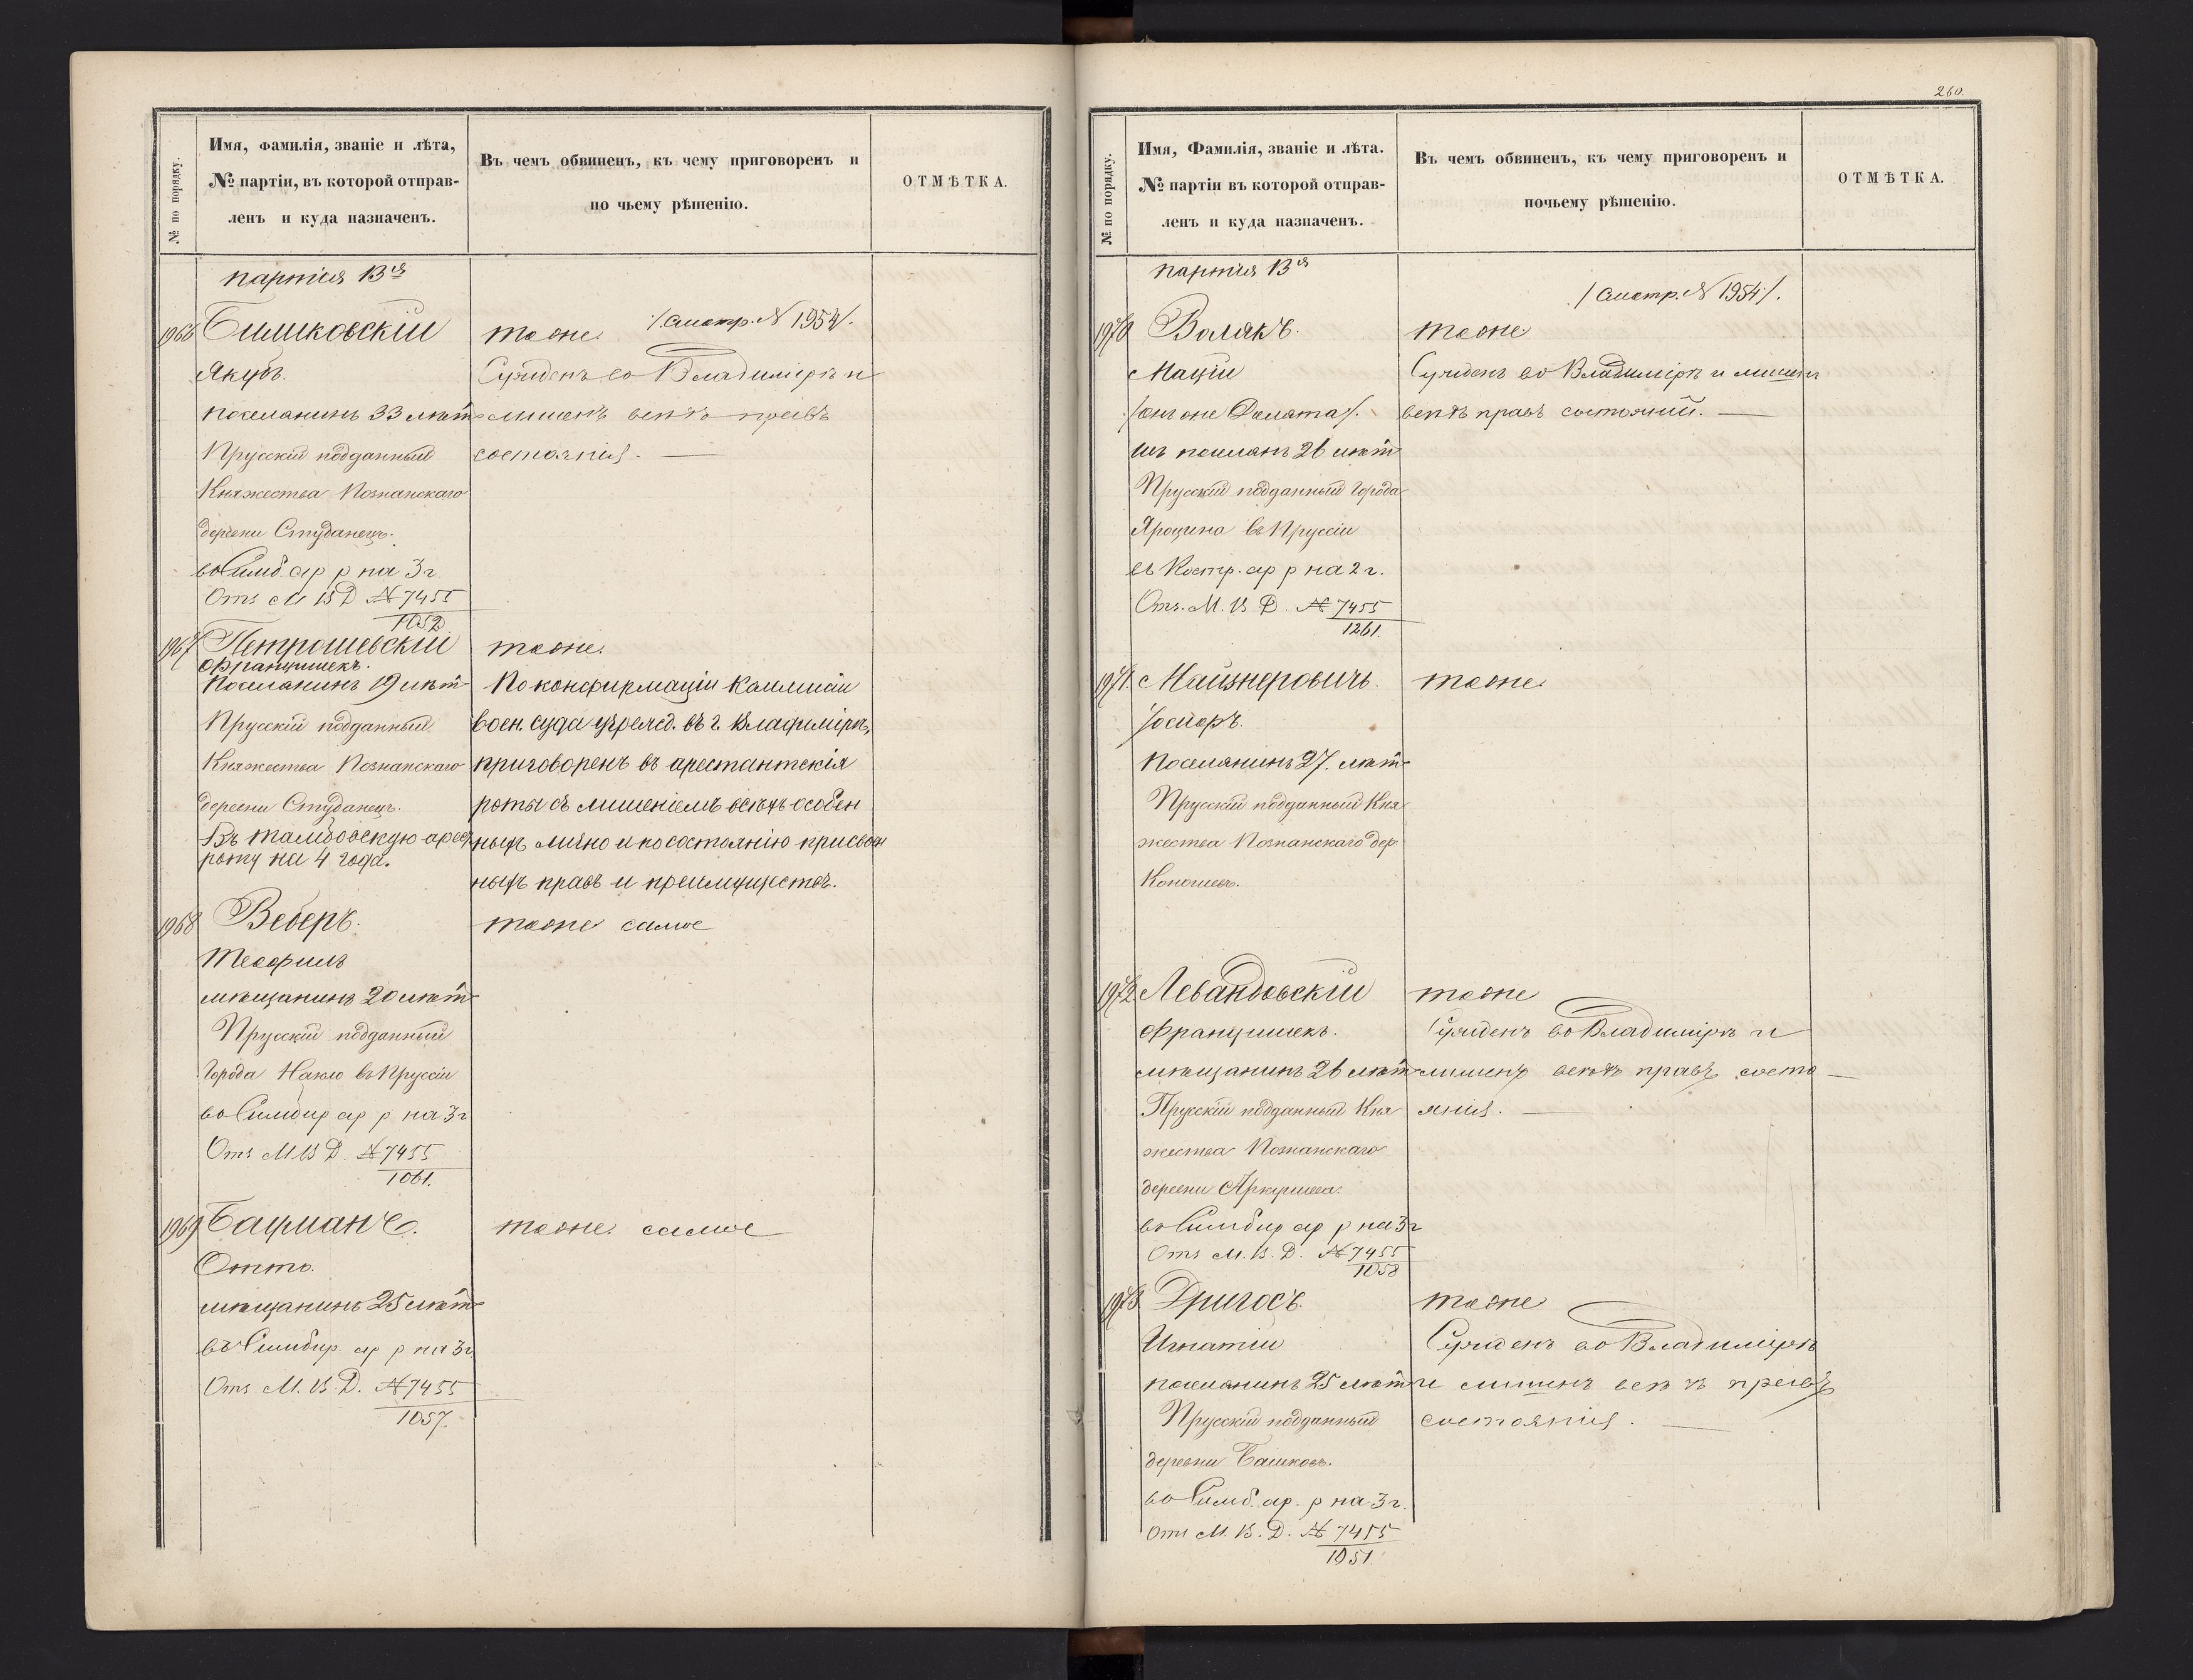 № по порядку.
Имя, фамилія, званіе и лѣта,
№ партіи, въ которой отправ-
ленъ и куда назначенъ.
Въ чемъ обвиненъ, къ чему приговоренъ и
по чьему рѣшенію.
ОТМѢТКА.
партія 13я
/смотр. № 1954/.
1966
Симковскій
тоже
Якубъ.
Сужденъ во Владимірѣ и
поселанинъ 33 лѣтъ
лишенъ всѣхъ правъ
Прусскій подданный
состоянія. —
Княжества Познанскаго
деревни Студанецъ.
въ Симб. ар р на 3 г
Отъ М В Д № 7455
1052
1967
Петрошевскій
тоже.
Францишекъ.
поселанинъ 19 лѣтъ
По конфирмаціи Коммисіи
Прусскій подданный
воен. суда учрежд. въ г. Владимірѣ,
Княжества Познанскаго
приговоренъ въ арестантскія
деревни Студанецъ.
роты съ лишеніемъ всѣхъ особен
Въ тамбовскую арест
ныхъ лично и по состоянію присвоен
роту на 4 года.
ныхъ правъ и преимуществъ.
1968
Веберъ.
тоже самое
Теофилъ
мѣщанинъ 20 лѣтъ
Прусскій подданный
города Накло въ Пруссіи
въ Симбир ар р на 3 г
Отъ М В Д. № 7455
1061.
1969
Бауманъ.
тоже самое
Отто.
мѣщанинъ 25 лѣтъ
въ Симбир. ар р на 3 г
Отъ М. В. Д. № 7455
1057.
260.
№ по порядку.
Имя, Фамилія, званіе и лѣта.
№ партіи въ которой отправ-
ленъ и куда назначенъ.
Въ чемъ обвиненъ, къ чему приговоренъ и
почьему рѣшенію.
ОТМѢТКА.
партія 13я
/смотр. № 1954/.
1970
Волякъ.
тоже
Мацѣй
Сужденъ во Владимірѣ и лишенъ
/онъ же Долата/.
всѣхъ правъ состояній. —
изъ поселанъ 26 лѣтъ
Прусскій подданный города
Яроцина въ Пруссіи
въ Костр. ар р на 2 г.
Отъ. М. В Д. № 7455
1261.
1971
Майзнеровичъ.
тоже
поселянинъ 27. лѣтъ
Прусскій подданный Кня
жества Познанскаго дер.
1972
Левандовскій
тоже
Францишекъ.
Сужденъ во Владимірѣ и
мѣщанинъ 26 лѣтъ
лишенъ всѣхъ правъ состо —
Прусскій подданный Кня
янія. —
жества Познанскаго
деревни
въ Симбир ар р на 3 г
Отъ М. В. Д. № 7455
1058
1973
Дригосъ.
тоже
Игнатій
Сужденъ во Владимірѣ
поселанинъ 25 лѣтъ
и лишенъ всѣхъ правъ
Прусскій подданный
состоянія. —
деревни Башковъ.
въ Симб. ар. р на 3 г.
Отъ М. В. Д. № 7455
1051